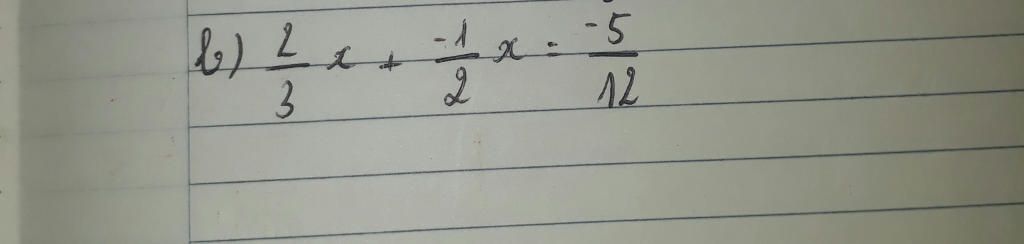 b) 2/3 x + -1/2 x = -5/12